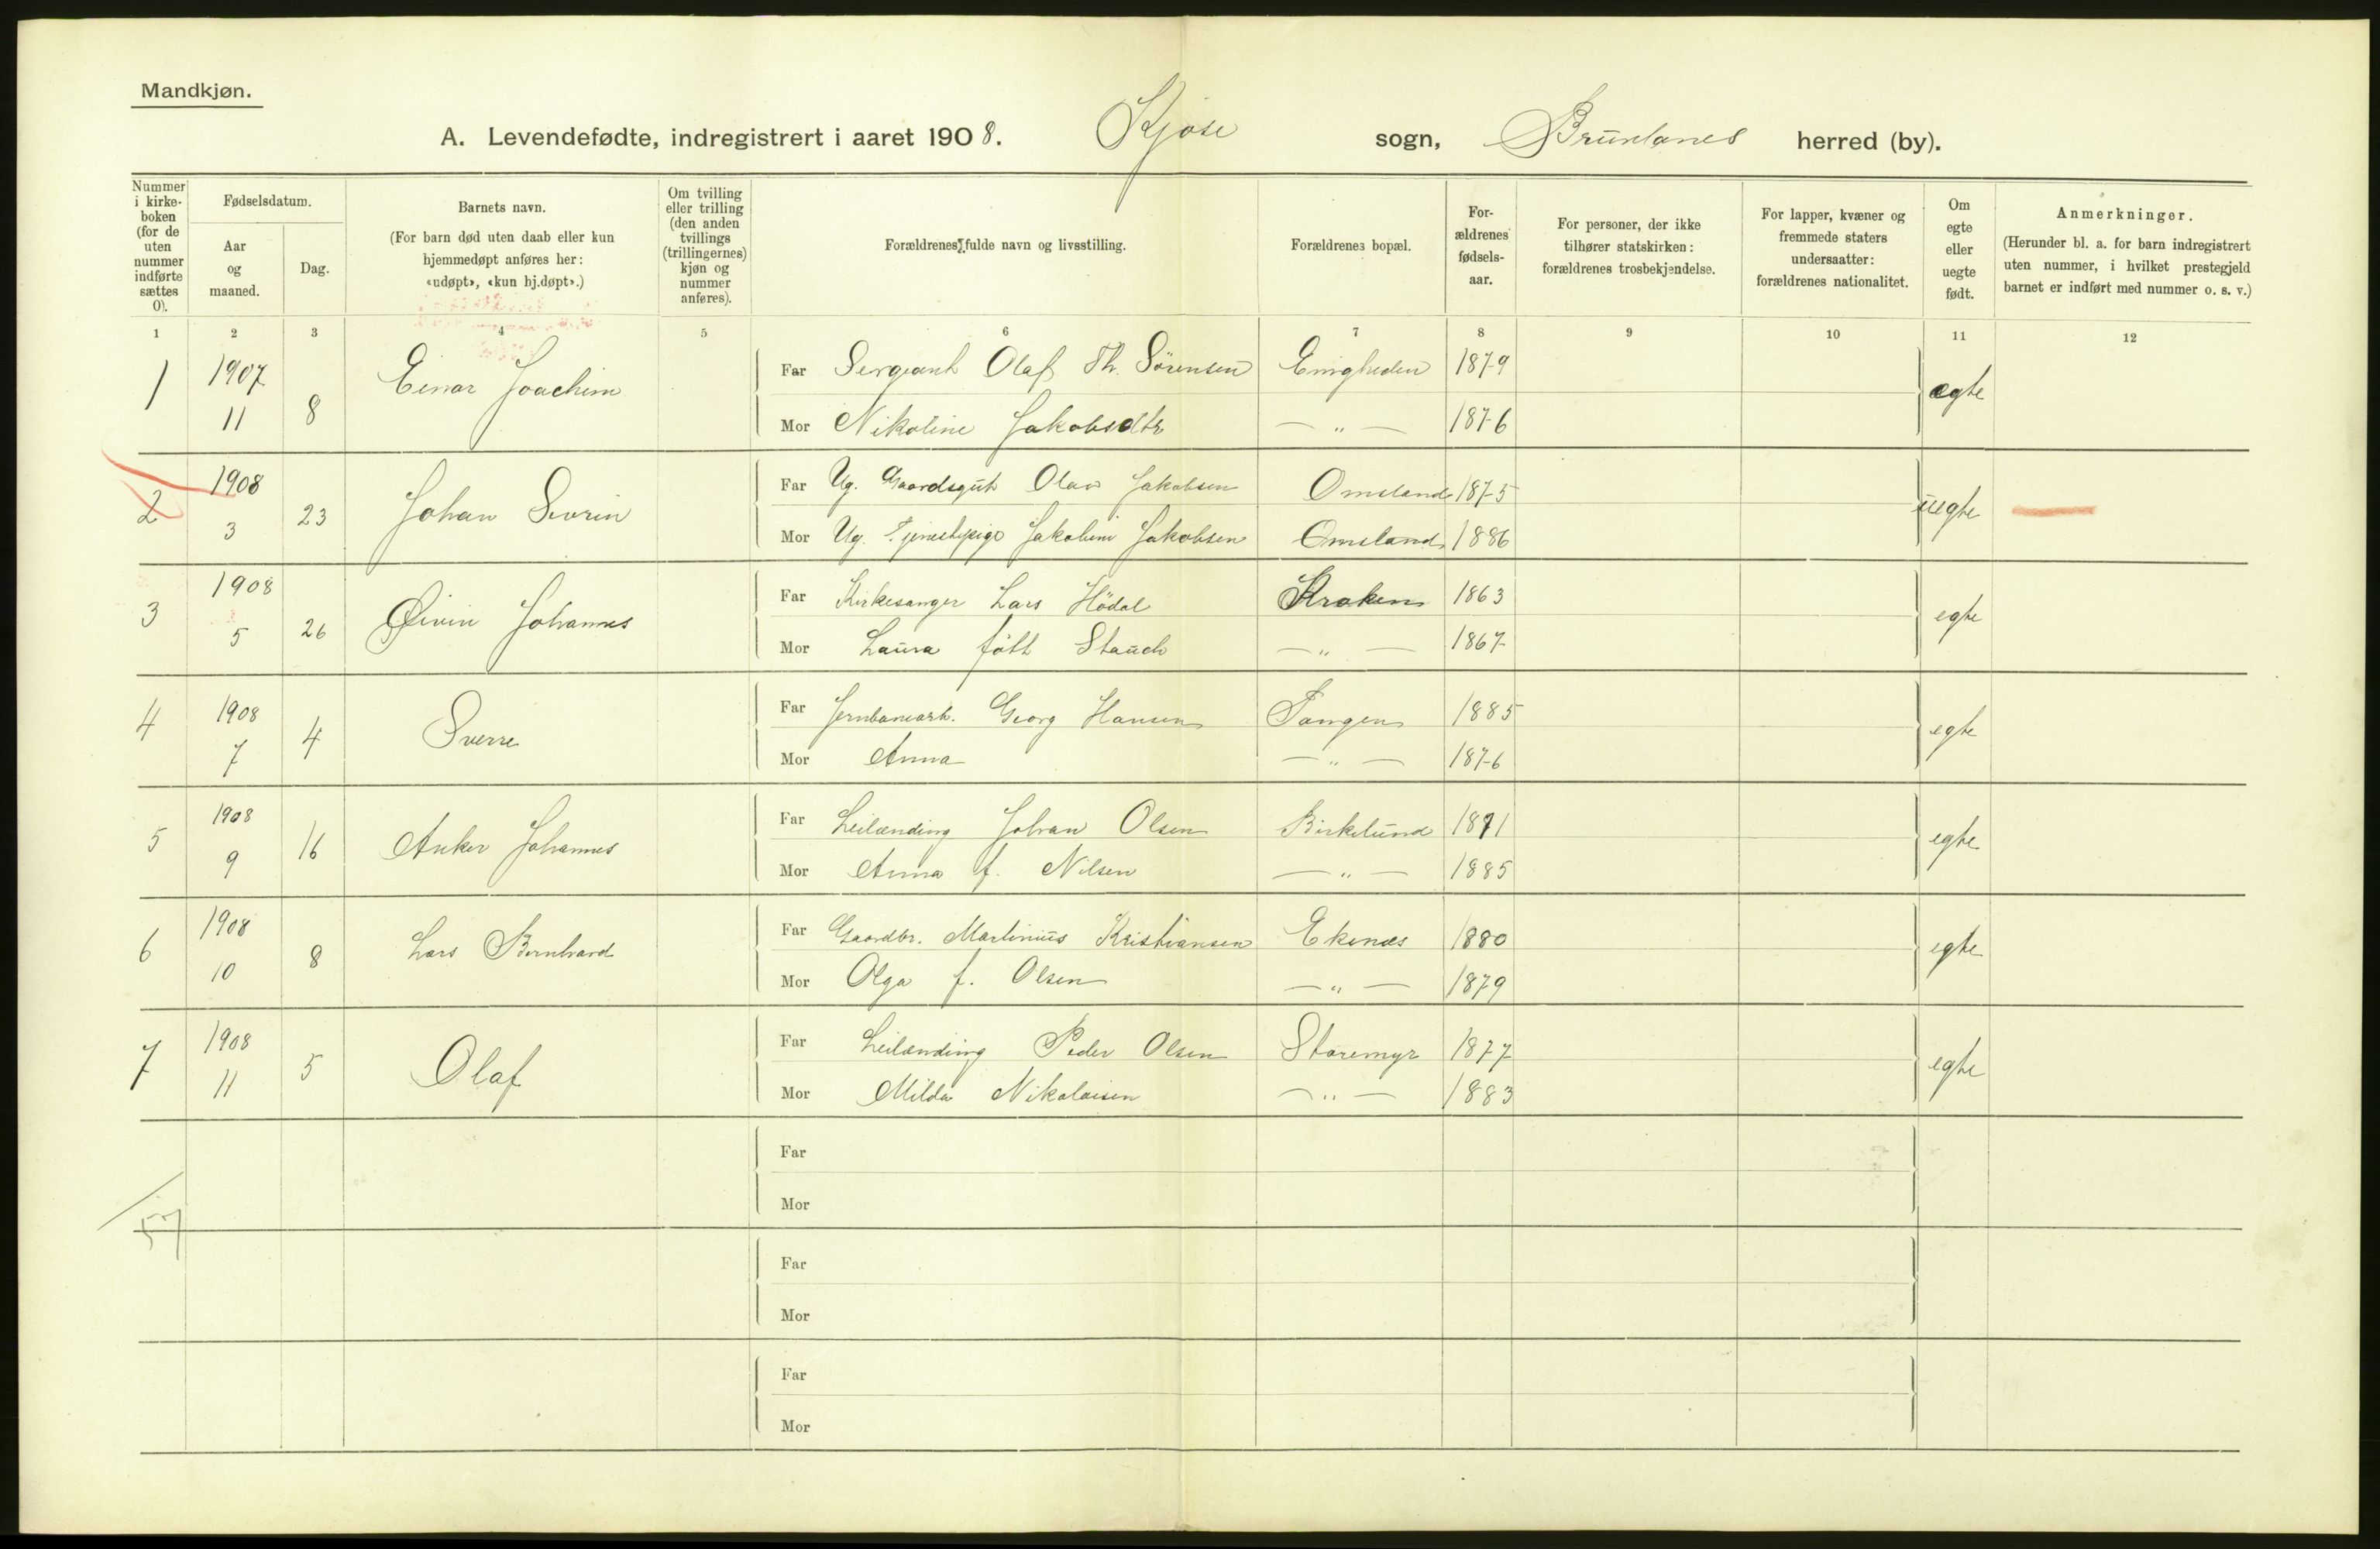 Mandkjøn.
A. Levendefødte, indregistrert i aaret 1908. Kjose sogn, Brunlanes herred (by).
Nummer i kirke-boken (for de uten nummer indførte sættes 0).
Fødselsdatum.
Aar og maaned.
Dag.
Barnets navn.
(For barn død uten daab eller kun hjemmedøpt anføres her: «udøpt», «kun hj.døpt».)
Om tvilling eller trilling (den anden tvillings (trillingernes) kjøn og nummer anføres).
Forældrenes fulde navn og livsstilling.
Forældrenes bopæl.
For-ældrenes fødsels-aar.
For personer, der ikke tilhører statskirken: forældrenes trosbekjendelse.
For lapper, kvæner og fremmede staters undersaatter: forældrenes nationalitet.
Om egte eller uegte født.
Anmerkninger.
(Herunder bl. a. for barn indregistrert uten nummer, i hvilket prestegjeld barnet er indført med nummer o. s. v.)
1 2 3 4 5 6 7 8 9 10 11 12
1 1907 11 8 Einar Joachim Far Sergeant Olaf Th. Sörensen Enigheden 1879 egte
Mor Nikoline Jakobsdtr — " — 1876
2 1908 3 23 Johan Sevrin Far Ug. Gaardsgut Olav Jakobsen Omsland 1875 uegte
Mor Ug. Tjenestepige Jakobine Jakobsen Omsland 1886
3 1908 5 26 Øivin Johannes Far Kirkesanger Lars Hödal Kraken 1863 egte
Mor Laura föth — " — 1867
4 1908 7 4 Sverre Far Jernbanearb. Georg Hansen Tangen 1885 egte
Mor Anna — " — 1876
5 1908 9 16 Anker Johannes Far Leilænding Johan Olsen Birkelund 1871 egte
Mor Anna f. Nilsen — " — 1885
6 1908 10 8 Lars Bernhard Far Gaardbr. Martinius Kristiansen Ekenæs 1880 egte
Mor Olga f. Olsen — " — 1879
7 1908 11 5 Olaf Far Leilænding Peder Olsen Storemyr 1877 egte
Mor Milda Nikolaisen — " — 1883
Far
Mor
57
Far
Mor
Far
Mor